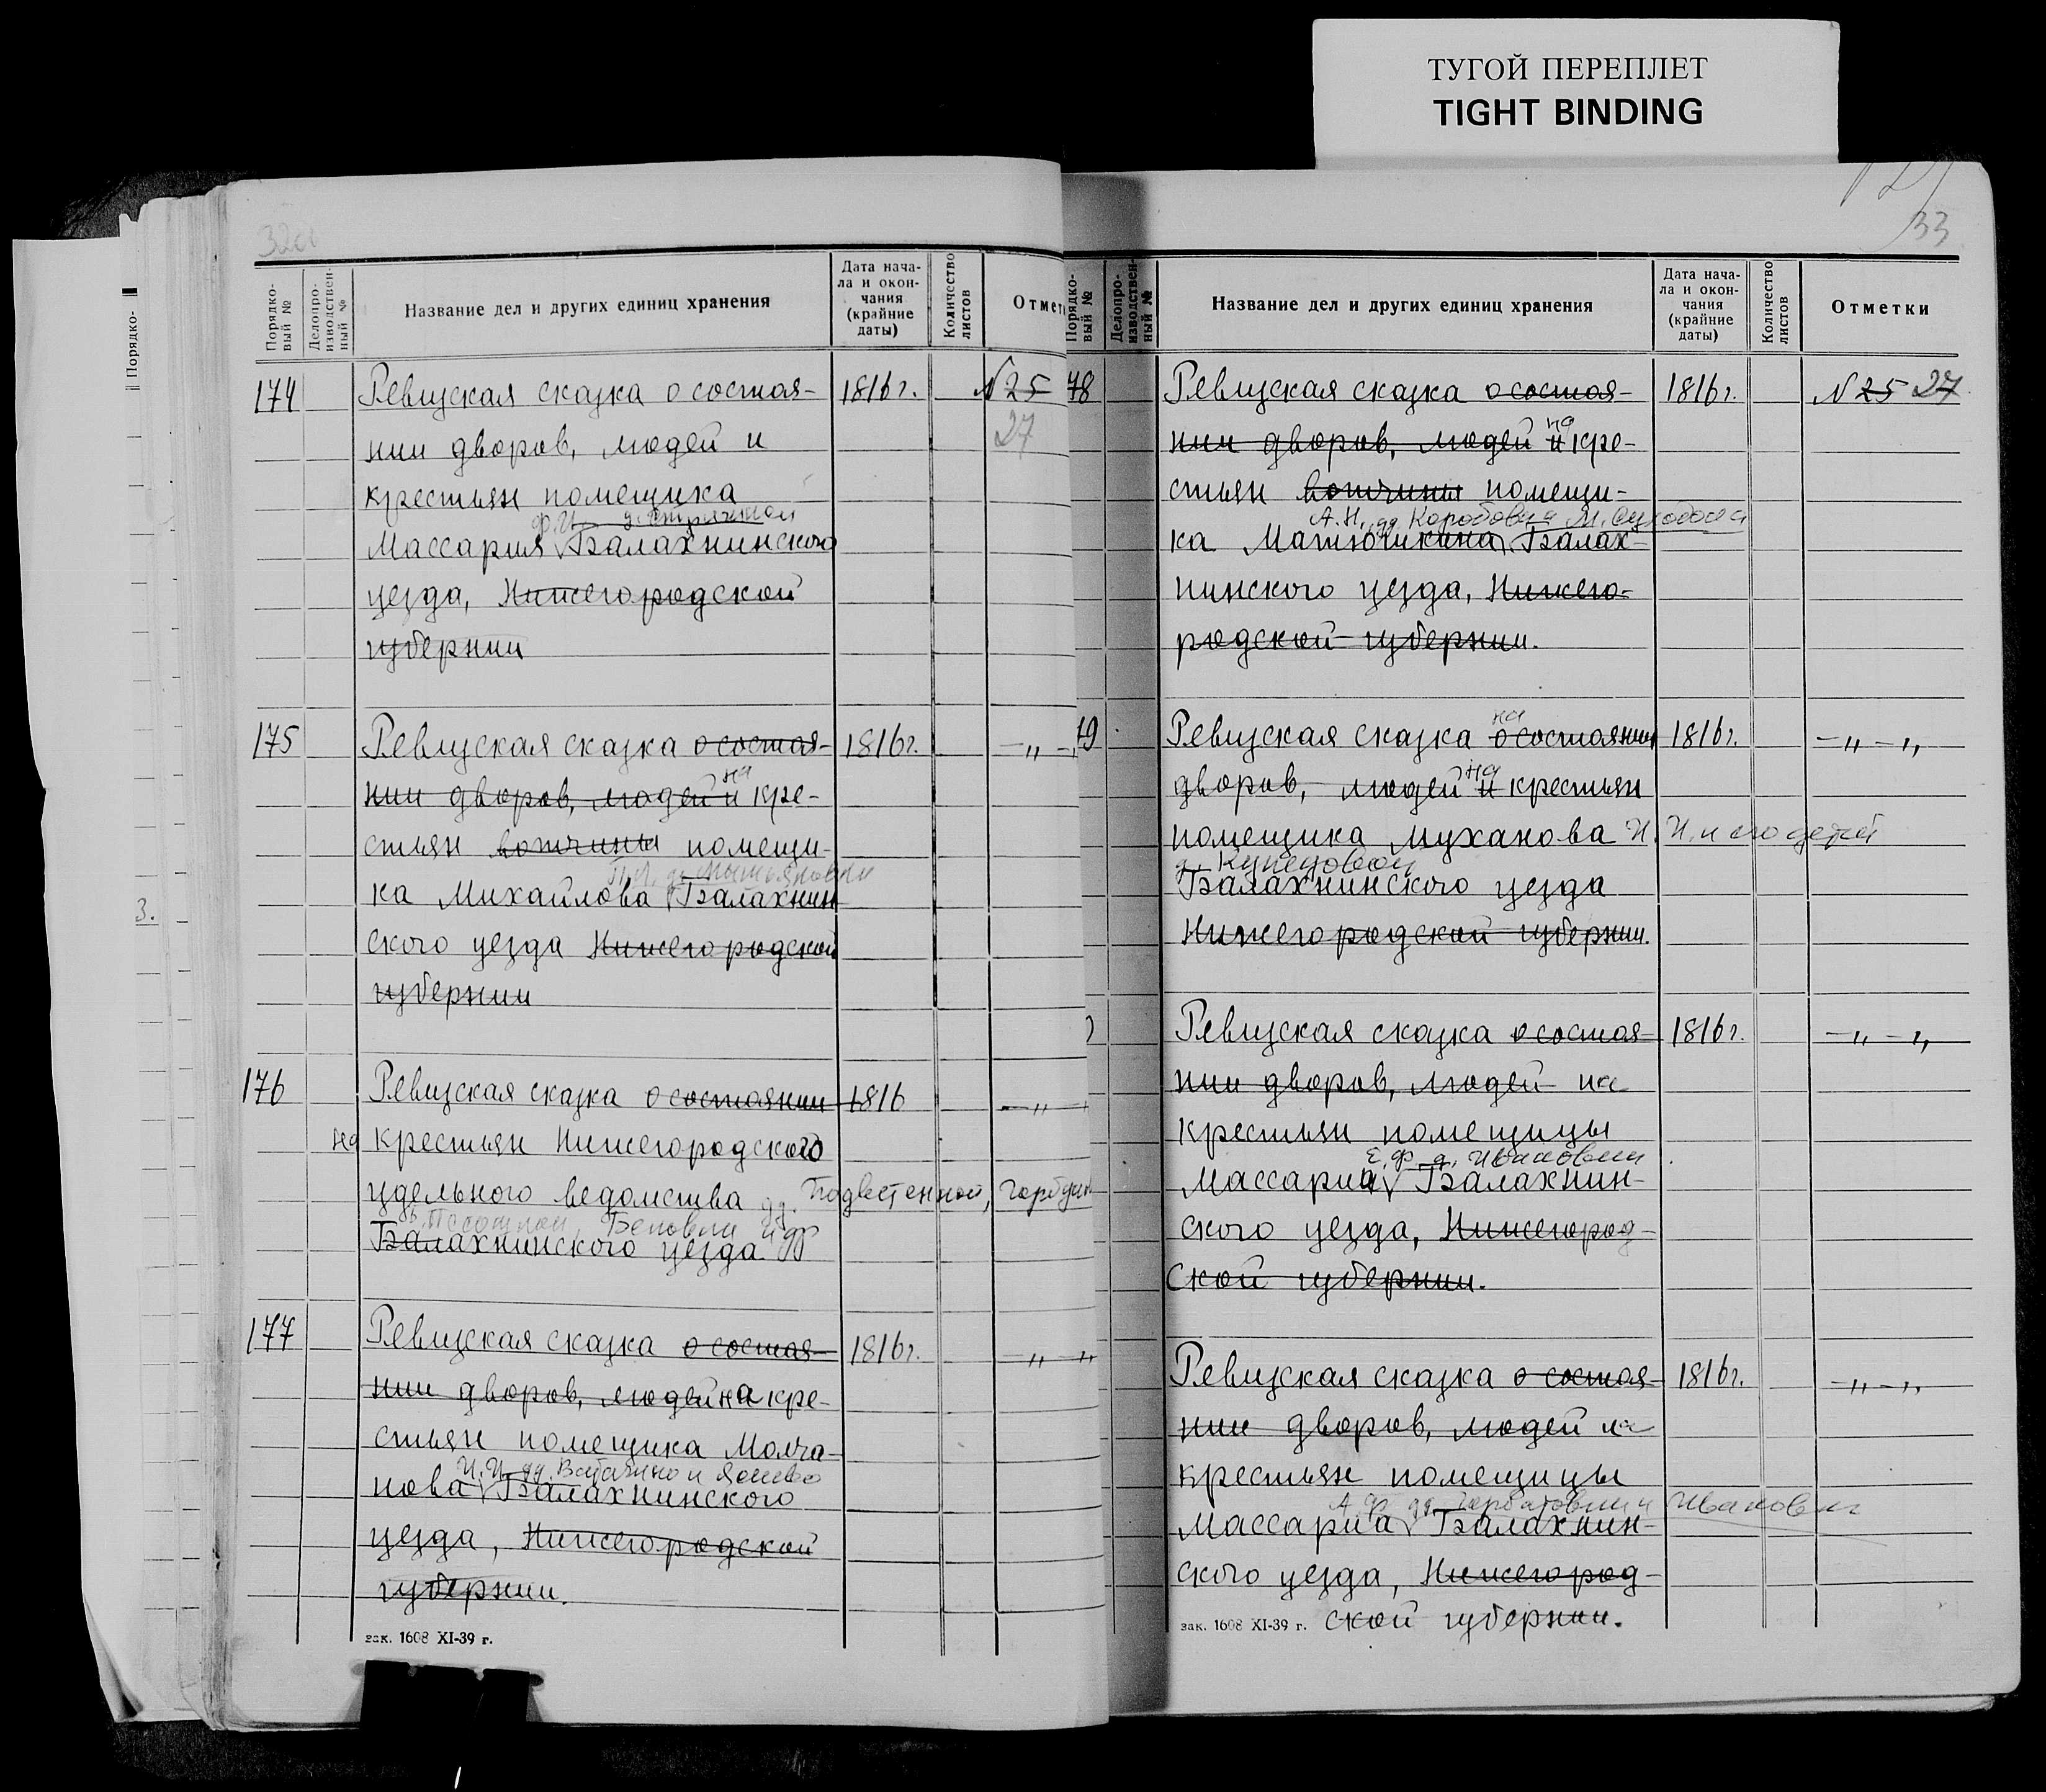 ТУГОЙ ПЕРЕПЛЕТ
TIGHT BINDING
Порядко-
3.
32об
Порядко-
вый №
Делопро-
изводствен-
ный №
Название дел и других единиц хранения
Дата нача-
ла и окон-
чания
(крайние
даты)
Количество
листов
Отмет
174 Ревизская сказка о состоя- 1816 г. N 25
27
нии дворов, людей и
крестьян помещика
Ф.И. д.
Массария Балахнинского
уезда, Нижегородской
губернии
175 Ревизская сказка о состоя- 1816 г. —„—
на
нии дворов, людей и кре-
стьян вотчины помещи-
ка Михайлова Балахнин
ского уезда Нижегородской
губернии
176 Ревизская сказка о состоянии 1816 —„—
на крестьян Нижегородского
удельного ведомства дд. Подвестенной,
Беловки и др
Балахнинского уезда
177 Ревизская сказка о состоя- 1816 г. —„—„
нии дворов, людей на кре-
стьян помещика Молча-
И.И. дд. и
нова Балахнинского
уезда, Нижегородской
губернии.
зак. 1608 XI-39 г.
33
Порядко-
вый №
Делопро-
изводствен-
ный №
Название дел и других единиц хранения
Дата нача-
ла и окон-
чания
(крайние
даты)
Количество
листов
Отметки
78 Ревизская сказка о состоя- 1816 г. N 25 27
на
нии дворов, людей и кре-
стьян вотчины помещи-
А.Н. дд. Коробовка
ка Матюшкина Балах-
нинского уезда, Нижего-
родской губернии.
на
79 Ревизская сказка о состоянии 1816 г. —„—„
на
дворов, людей и крестьян
помещика Муханова И. И. и его детей
д. Купецовой
Балахнинского уезда
Нижегородской губернии.
Ревизская сказка о состоя- 1816 г. —„—„
нии дворов, людей на
крестьян помещицы
Е.Ф. д. Ивановки
Массариа Балахнин-
ского уезда, Нижегород-
ской губернии.
Ревизская сказка о состоя- 1816 г. —„—„
нии дворов, людей на
крестьян помещицы
А.Ф. дд. Горбатовки и Ивановки
Массариа Балахнин-
ского уезда, Нижегород-
ской губернии.
зак. 1608 XI-39 г.